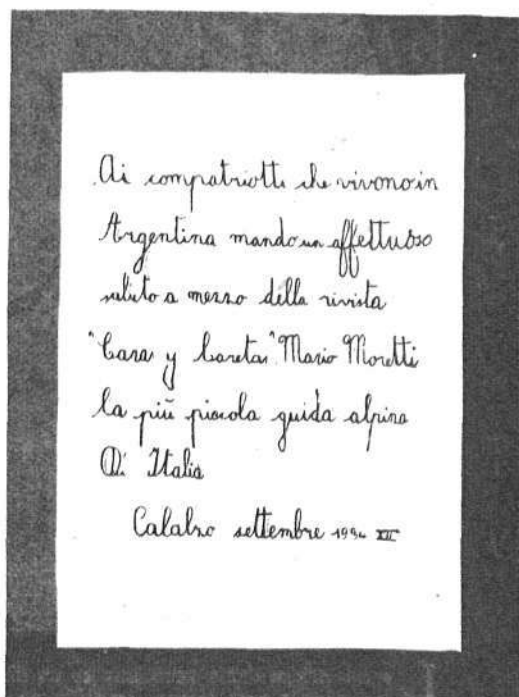 Ai compatriotti che vivono in
Argentina mando un affettuoso
saluto a mezzo della rivista
"Caras y Caretas" Mario Moretti
la più piccola guida alpina
Di Italia
Calalzo settembre 1934 XII